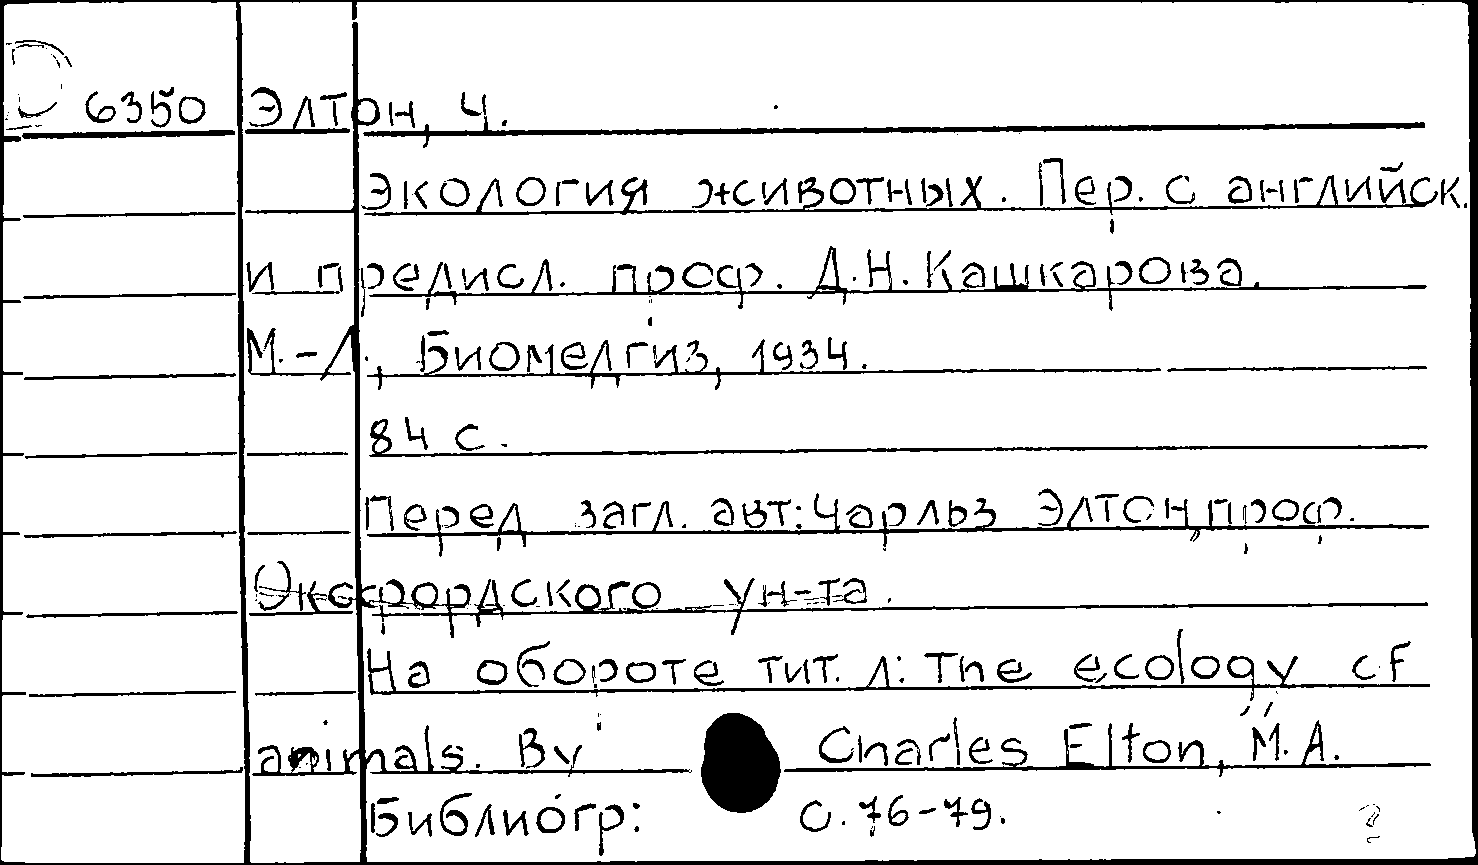 D 6350 Элтон, Ч.
Экология животных. Пер. с английск.
и предисл. проф. Д.Н. Кашкарова.
М.-Л., Биомедгиз, 1934.
84 с.
Перед загл. авт: Чарльз Элтон, проф.
Оксфордского ун-та.
На обороте тит. л: The ecology of
animals. By Charles Elton, M.A.
Библиогр: с. 76-79.